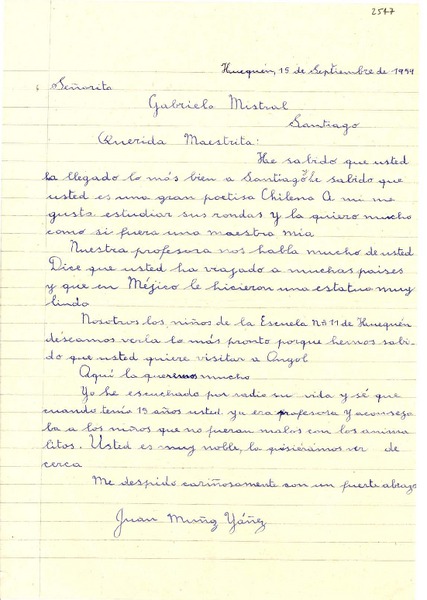 2547
Huequén, 15 de Septiembre de 1954
Señorita
Gabriela Mistral
Santiago
Querida Maestrita:
He sabido que usted
ha llegado lo más bien a Santiago y He sabido que
usted es una gran poetisa Chilena A mi me
gusta estudiar sus rondas y la quiero mucho
como si fuera una maestra mia
Nuestra profesora nos habla mucho de usted
Dice que usted ha viajado a muchas paises
y que en Méjico le hicieron una estatua muy
linda
Nosotros los niños de la Escuela Nº 11 de Huequén
deseamos verla lo más pronto porque hemos sabi
do que usted quiere visitar a Angol
Aquí la queremos mucho
Yo he escuchado por radio su vida y sé que
cuando tenía 15 años usted ya era profesora y aconseja
ba a los niños que no fueran malos con los anima
litos. Usted es muy noble, la quisiéramos ver de
cerca
Me despido cariñosamente con un fuerte abrazo
Juan Muñoz Yáñez